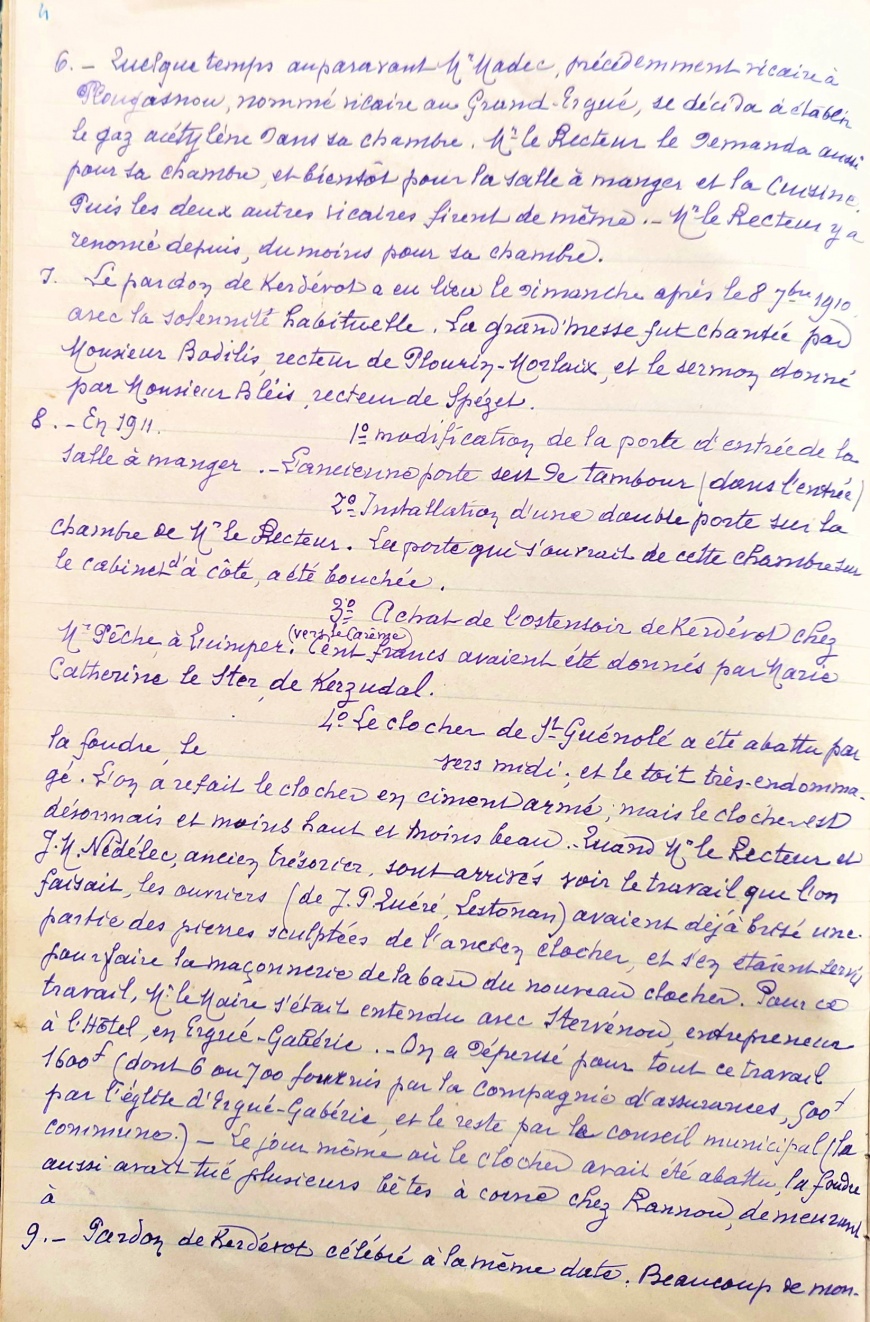 4
6. – Quelque temps auparavant Mr Madec, précédemment vicaire à
Plougasnou, nommé vicaire au Grand-Ergué, se décida à établir
le gaz acétylène dans sa chambre. Mr le Recteur le demanda aussi
pour sa chambre, et bientôt pour la salle à manger et la cuisine.
Puis les deux autres vicaires firent de même. – Mr le Recteur y a
renoncé depuis, du moins pour sa chambre.
7. Le pardon de Kerdévot a eu lieu le dimanche après le 8 7bre 1910
avec la solennité habituelle. La grand'messe fut chantée par
Monsieur Bodilis, recteur de Plourin-Morlaix, et le sermon donné
par Monsieur Bléis, recteur de Spézet.
8. – En 1911.
1º modification de la porte d'entrée de la
salle à manger. – L'ancienne porte sert de tambour (dans l'entrée)
2º Installation d'une double porte sur la
chambre de Mr le Recteur. La porte qui s'ouvrait de cette chambre sur
le cabinet d'à côté, a été bouchée.
3º Achat de l'ostensoir de Kerdévot chez
Mr Pêche, à Quimper. (vers le Carême) Cent francs avaient été donnés par Marie
Catherine le Ster, de Kerzudal.
4º Le clocher de St Guénolé a été abattu par
la foudre, le vers midi ; et le toit très-endomma-
gé. L'on a refait le clocher en ciment armé ; mais le clocher est
désormais et moins haut et moins beau. – Quand Mr le Recteur et
J. M. Nédélec, ancien trésorier, sont arrivés voir le travail que l'on
faisait, les ouvriers (de J. P. Quéré, Lestonan) avaient déjà brisé une
partie des pierres sculptées de l'ancien clocher, et s'en étaient servis
pour faire la maçonnerie de la base du nouveau clocher. Pour ce
travail, Mr le Maire s'était entendu avec Stervénou, entrepreneur
à l'Hôtel, en Ergué-Gabéric. – On a dépensé pour tout ce travail
1600f (dont 6 ou 700 fournis par la compagnie d'assurances, 500f
par l'église d'Ergué-Gabéric, et le reste par le conseil municipal (la
commune.) – Le jour même où le clocher avait été abattu, la foudre
aussi avait tué plusieurs bêtes à corne chez Rannou, demeurant
à
9. – Pardon de Kerdévot célébré à la même date. Beaucoup de mon-